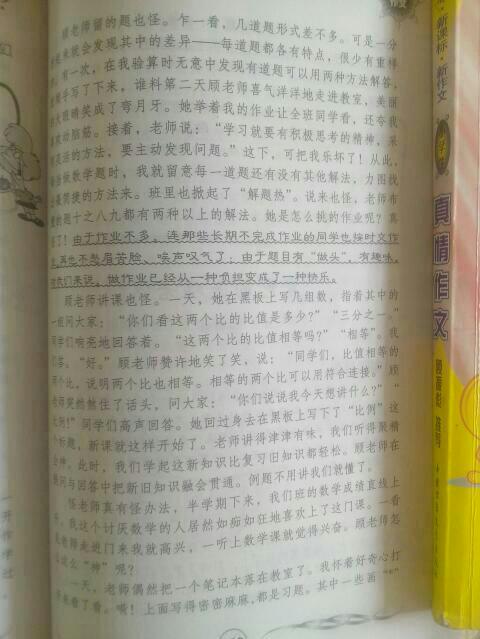 顾老师留的题也怪。乍一看，几道题形式差不多。可是一分
起来就会发现其中的差异——每道题都各有特点，很少有重样
有一次，在我验算时无意中发现有道题可以用两种方法解答，
手写了下来。谁料第二天顾老师喜气洋洋地走进教室，美丽
大眼睛笑成了弯月牙。她举着我的作业让全班同学看，还夸我
喜欢动脑筋。接着，老师说：“学习就要有积极思考的精神，采
灵活的方法，要主动发现问题。”这下，可把我乐坏了！从此，
做数学题时，我就留意每一道题还有没有其他解法，力图找
最简捷的方法来。班里也掀起了“解题热”。说来也怪，老师布
的题十之八九都有两种以上的解法。她是怎么挑的作业呢？真
了！由于作业不多，连那些长期不完成作业的同学也按时交作
再也不愁眉苦脸、唉声叹气了；由于题目有“做头”，有趣味，
我们来说，做作业已经从一种负担变成了一种快乐。
顾老师讲课也怪。一天，她在黑板上写几组数，指着其中的
一组问大家：“你们看这两个比的比值是多少？”“三分之一。”
同学们响亮地回答着。“这两个比的比值相等吗？”“相等。”我
们答。“好。”顾老师赞许地笑了笑，说：“同学们，比值相等的
两个比，说明两个比也相等。相等的两个比可以用符合连接。”顾
老师突然煞住了话头，问大家：“你们说说我今天想讲什么？”“
比例！”同学们高声回答。她回过身去在黑板上写下了“比例”这
个标题，新课就这样开始了。老师讲得津津有味，我们听得聚精
会神。此时，我们学起这新知识比复习旧知识都轻松。顾老师在
提问与回答中把新旧知识融会贯通。例题不用讲我们就懂了。
怪老师真有怪办法，半学期下来，我们班的数学成绩直线上
升。我这个讨厌数学的人居然如痴如狂地喜欢上了这门课。一看
老师走进门来我就高兴，一听上数学课就觉得兴奋。顾老师怎
么这么“神”呢？
一天，老师偶然把一个笔记本落在教室了。我怀着好奇心打
开来看了看。嗬！上面写得密密麻麻，都是习题。其中一些画“*”
新课标·新作文
真情作文